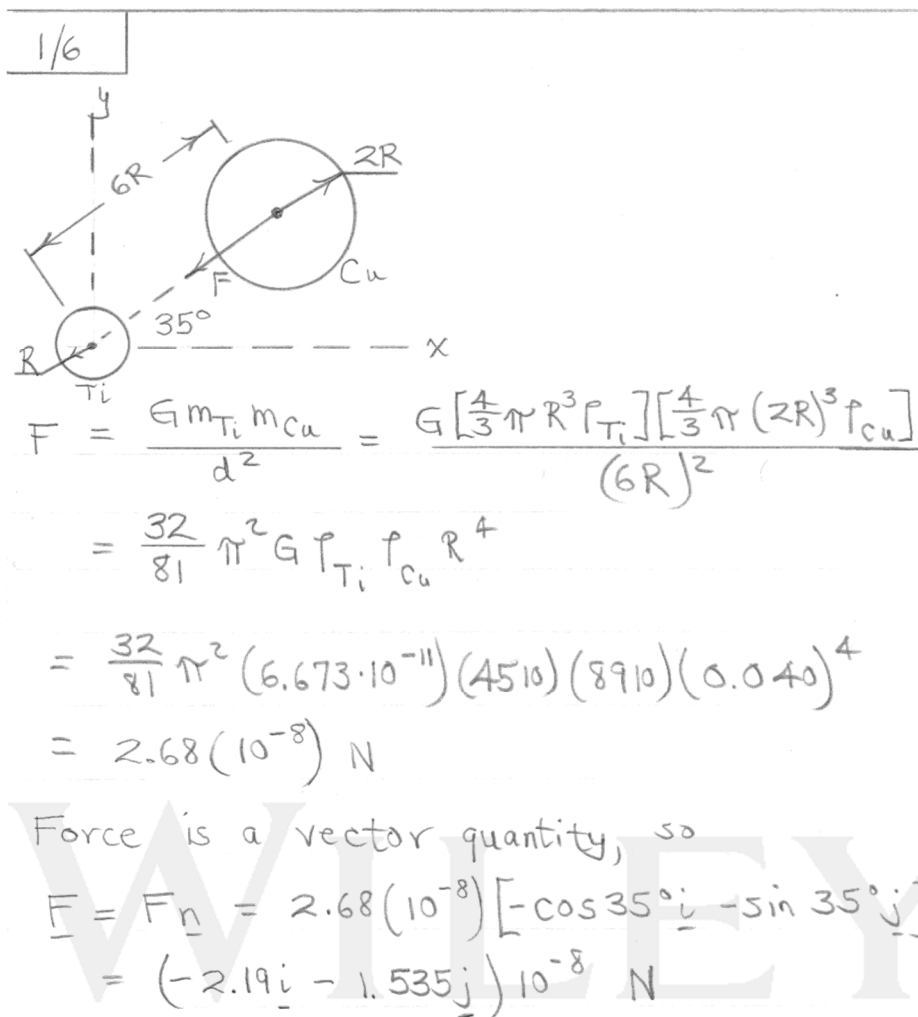 1/6
y
6R
2R
F
Cu
35°
x
R
Ti
F = G m_Ti m_Cu / d² = G[4/3 π R³ ρ_Ti][4/3 π (2R)³ ρ_Cu] / (6R)²
= 32/81 π² G ρ_Ti ρ_Cu R⁴
= 32/81 π² (6.673·10⁻¹¹)(4510)(8910)(0.040)⁴
= 2.68(10⁻⁸) N
Force is a vector quantity, so
F = Fn = 2.68(10⁻⁸)[-cos35°i -sin 35°j
= (-2.19i - 1.535j)10⁻⁸ N
WILEY